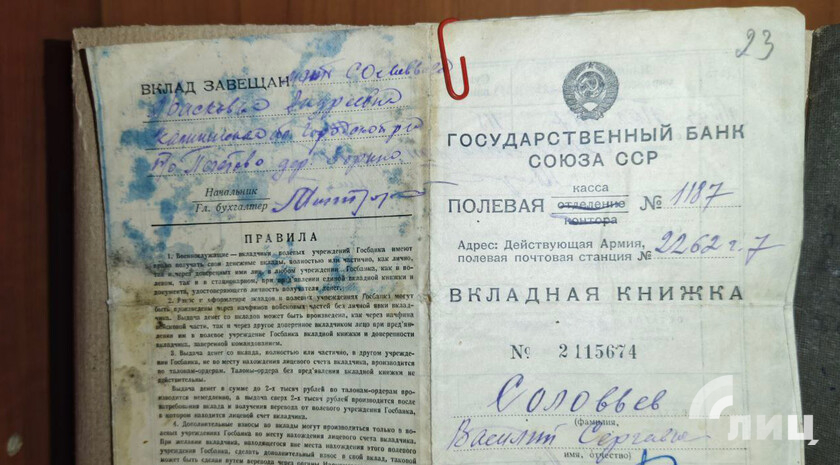 ВКЛАД ЗАВЕЩАН
Начальник
Гл. бухгалтер
ПРАВИЛА
1. Военнослужащие — вкладчики полевых учреждений Госбанка имеют
право получать свои денежные вклады, полностью или частично, как лично,
так и через доверенных ими лиц в любом учреждении Госбанка, как в по-
левом, так и в стационарном, при предъявлении единой вкладной книжки и
документа, удостоверяющего личность получателя денег.
2. Взнос и оформление вкладов в полевых учреждениях Госбанка могут
быть произведены через начфинов войсковых частей без личной явки вклад-
чика. Выдача денег со вкладов может быть произведена, как через начфина
войсковой части, так и через другое доверенное вкладчиком лицо при предъяв-
лении им в полевое учреждение Госбанка вкладной книжки и доверенности
вкладчика, заверенной командованием.
3. Выдача денег со вклада, полностью или частично, в другом учрежде-
нии Госбанка, не по месту нахождения лицевого счета вкладчика, производится
по талонам-ордерам. Талоны-ордера без предъявления вкладной книжки не
действительны.
Выдача денег в сумме до 2-х тысяч рублей по талонам-ордерам про-
изводится немедленно, а выдача сверх 2-х тысяч рублей производится после
востребования вклада и получения перевода от полевого учреждения Госбанка,
в котором находится лицевой счет вкладчика.
4. Дополнительные взносы на вклады могут производиться только в по-
левых учреждениях Госбанка по месту нахождения лицевого счета вкладчика.
При желании вкладчика, находящегося вне места нахождения этого полевого
учреждения Госбанка, сделать дополнительный взнос в свой вклад, таковой
может быть сделан путем перевода через
23
ГОСУДАРСТВЕННЫЙ БАНК
СОЮЗА ССР
касса
ПОЛЕВАЯ отделение № 1187
контора
Адрес: Действующая Армия,
полевая почтовая станция № 2262 г. 7
ВКЛАДНАЯ КНИЖКА
№ 2115674
Соловьев
(фамилия,
Василий Сергеевич
имя, отчество)
ЛИЦ